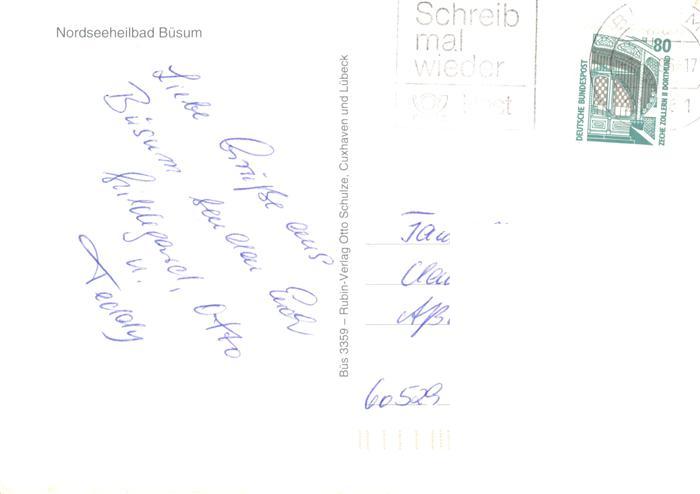 Nordseeheilbad Büsum
Liebe Grüße aus
Büsum senden Euch
Hildegard, Otto
u.
Teddy
Büs 3359 – Rubin-Verlag Otto Schulze, Cuxhaven und Lübeck
Schreib
mal
wieder
Post
80
DEUTSCHE BUNDESPOST
ZECHE ZOLLERN II DORTMUND
17
1
Fam
60529